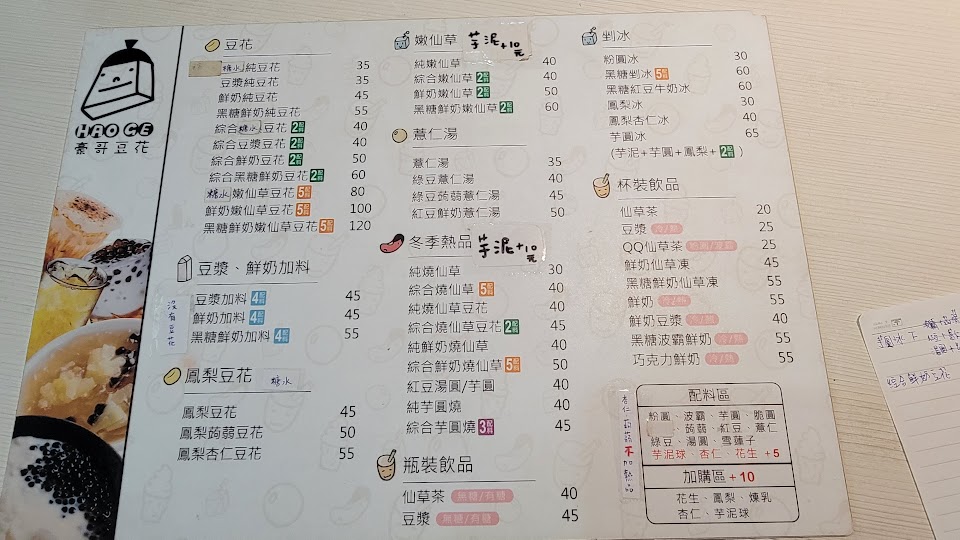 HAO GE
豪哥豆花
豆花
糖水純豆花 35
豆漿純豆花 35
鮮奶純豆花 45
黑糖鮮奶純豆花 55
綜合糖水豆花2配料 40
綜合豆漿豆花2配料 40
綜合鮮奶豆花2配料 50
綜合黑糖鮮奶豆花2配料 60
糖水嫩仙草豆花5配料 80
鮮奶嫩仙草豆花5配料 100
黑糖鮮奶嫩仙草豆花5配料 120
豆漿、鮮奶加料
沒有豆花
豆漿加料4配料 45
鮮奶加料4配料 45
黑糖鮮奶加料4配料 55
鳳梨豆花 糖水
鳳梨豆花 45
鳳梨蒟蒻豆花 50
鳳梨杏仁豆花 55
嫩仙草 芋泥+10元
純嫩仙草 40
綜合嫩仙草2配料 40
鮮奶嫩仙草2配料 50
黑糖鮮奶嫩仙草2配料 60
薏仁湯
薏仁湯 35
綠豆薏仁湯 40
綠豆蒟蒻薏仁湯 45
紅豆鮮奶薏仁湯 50
冬季熱品 芋泥+10元
純燒仙草 30
綜合燒仙草5配料 40
純燒仙草豆花 40
綜合燒仙草豆花2配料 45
純鮮奶燒仙草 40
綜合鮮奶燒仙草5配料 50
紅豆湯圓/芋圓 40
純芋圓燒 40
綜合芋圓燒3配料 45
瓶裝飲品
仙草茶 無糖/有糖 40
豆漿 無糖/有糖 45
剉冰
粉圓冰 30
黑糖剉冰5配料 60
黑糖紅豆牛奶冰 60
鳳梨冰 30
鳳梨杏仁冰 40
芋圓冰 65
(芋泥+芋圓+鳳梨+2配料)
杯裝飲品
仙草茶 20
豆漿 冷/熱 25
QQ仙草茶 25
鮮奶仙草凍 45
黑糖鮮奶仙草凍 55
鮮奶 冷/熱 55
鮮奶豆漿 冷/熱 55
黑糖波霸鮮奶 冷/熱 55
巧克力鮮奶 冷/熱 55
杏仁蒟蒻不加熱品
配料區
粉圓、波霸、芋圓、脆圓
、蒟蒻、紅豆、薏仁
綠豆、湯圓、雪蓮子
芋泥球、杏仁、花生 +5
加購區+10
花生、鳳梨、煉乳
杏仁、芋泥球
綜合鮮奶豆花